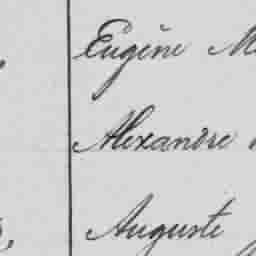 Eugène M
Alexandre
Auguste